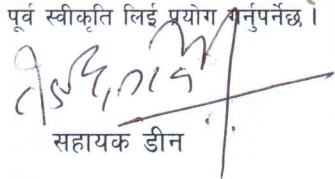 पूर्व स्वीकृति लिई प्रयोग गर्नुपर्नेछ ।
सहायक डीन